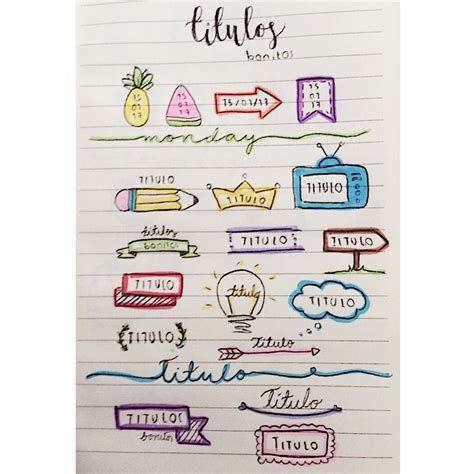 titulos
bonitos
15 07 17
15 07 17
15/07/17
15 07 17
monday
TITULO
TITULO
TITULO
titulos
bonitos
TITULO
TITULO
TITULO
titulo
TITULO
TITULO
Titulo
Titulo
TITULOS
bonitos
Titulo
TITULO